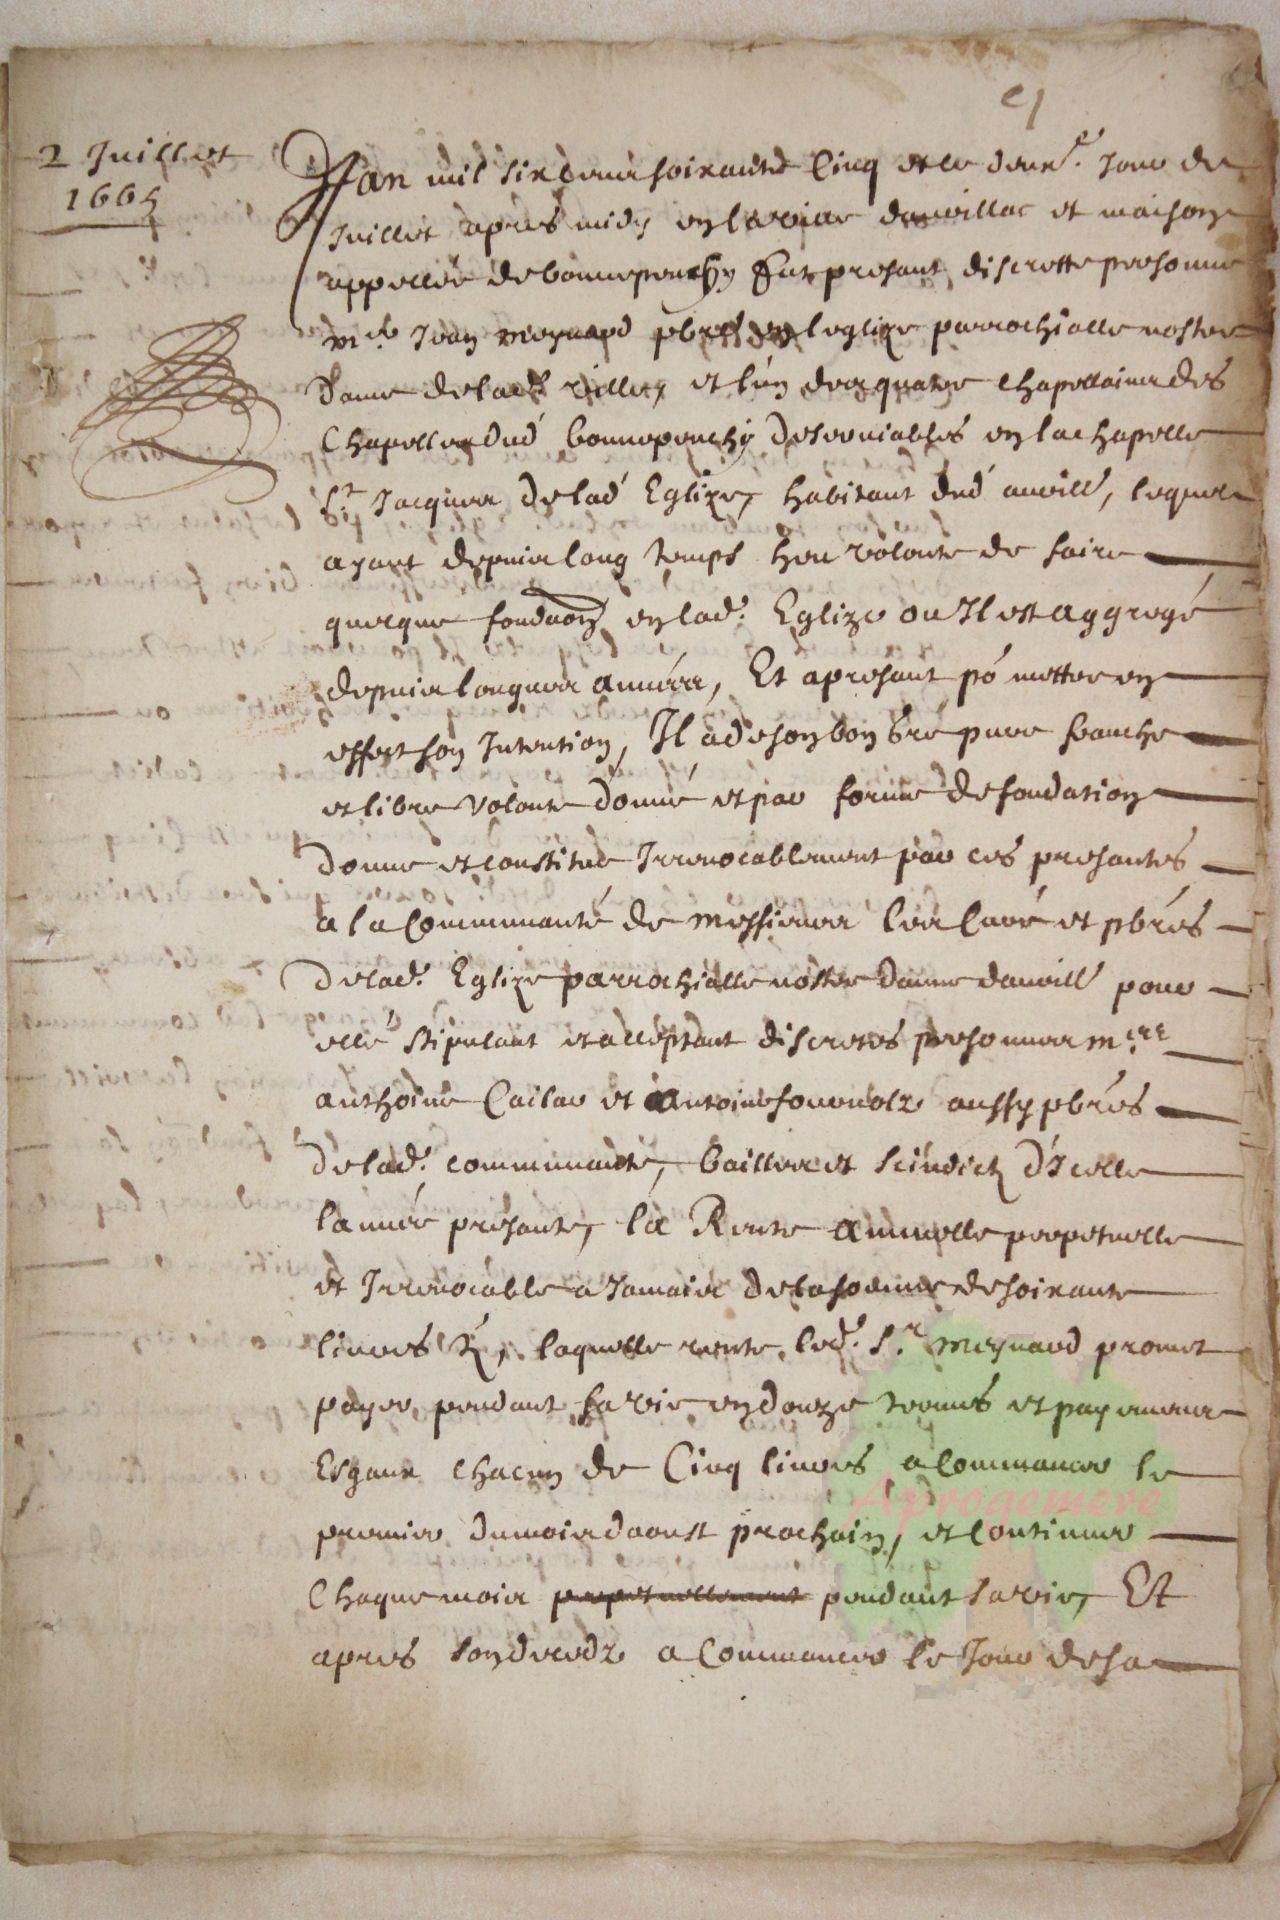 2 Juillet
1665
L'an mil six cens soixante cinq et le deuxe. Jour de
Juillet apres midy en la ville daurillac et maison
appellée de bonnepenchy Fut presant discrette personne
me Jean Meynard pbre en leglize parrochialle nostre
dame de lad. ville, et l'un des quatre chapellains des
Chapelles dud bonnepenchy deservables en la chapelle
St Jacques de lad Eglize, habitant dud aurill, lequel
ayant depuis long temps heu volonte de faire
quelque fondaon en lad. Eglize ou Il est aggregé
depuis longues années, Et apresant po mettre en
effect son Intention, Il a de son bon gré pure franche
et libre volonte donné et par forme de fondation
donne et constitue Irrevocablement par ces presantes
a la Communauté de messieurs les Curé et pbres
de lad. Eglize parrochialle nostre dame daurill pour
elle stipulant et acceptant discretes personnes mres
anthoine Cailar et antoine fournolz aussy pbres
de lad. communauté, bailles et scindictz d'Icelle
lannée presante, la Rente annuelle perpetuelle
et Irrevocable a Jamais de la somme de soixante
livres tz, laquelle rente led. Sr Meynard promet
payer pendant sa vie en douze termes et payemens
Esgaux chacun de Cinq livres a Commancer le
premier du mois daoust prochain, et Continuer
Chaque mois perpetuellement pendant sa vie, Et
apres son decedz a Commancer le Jour de sa
Aprogemere